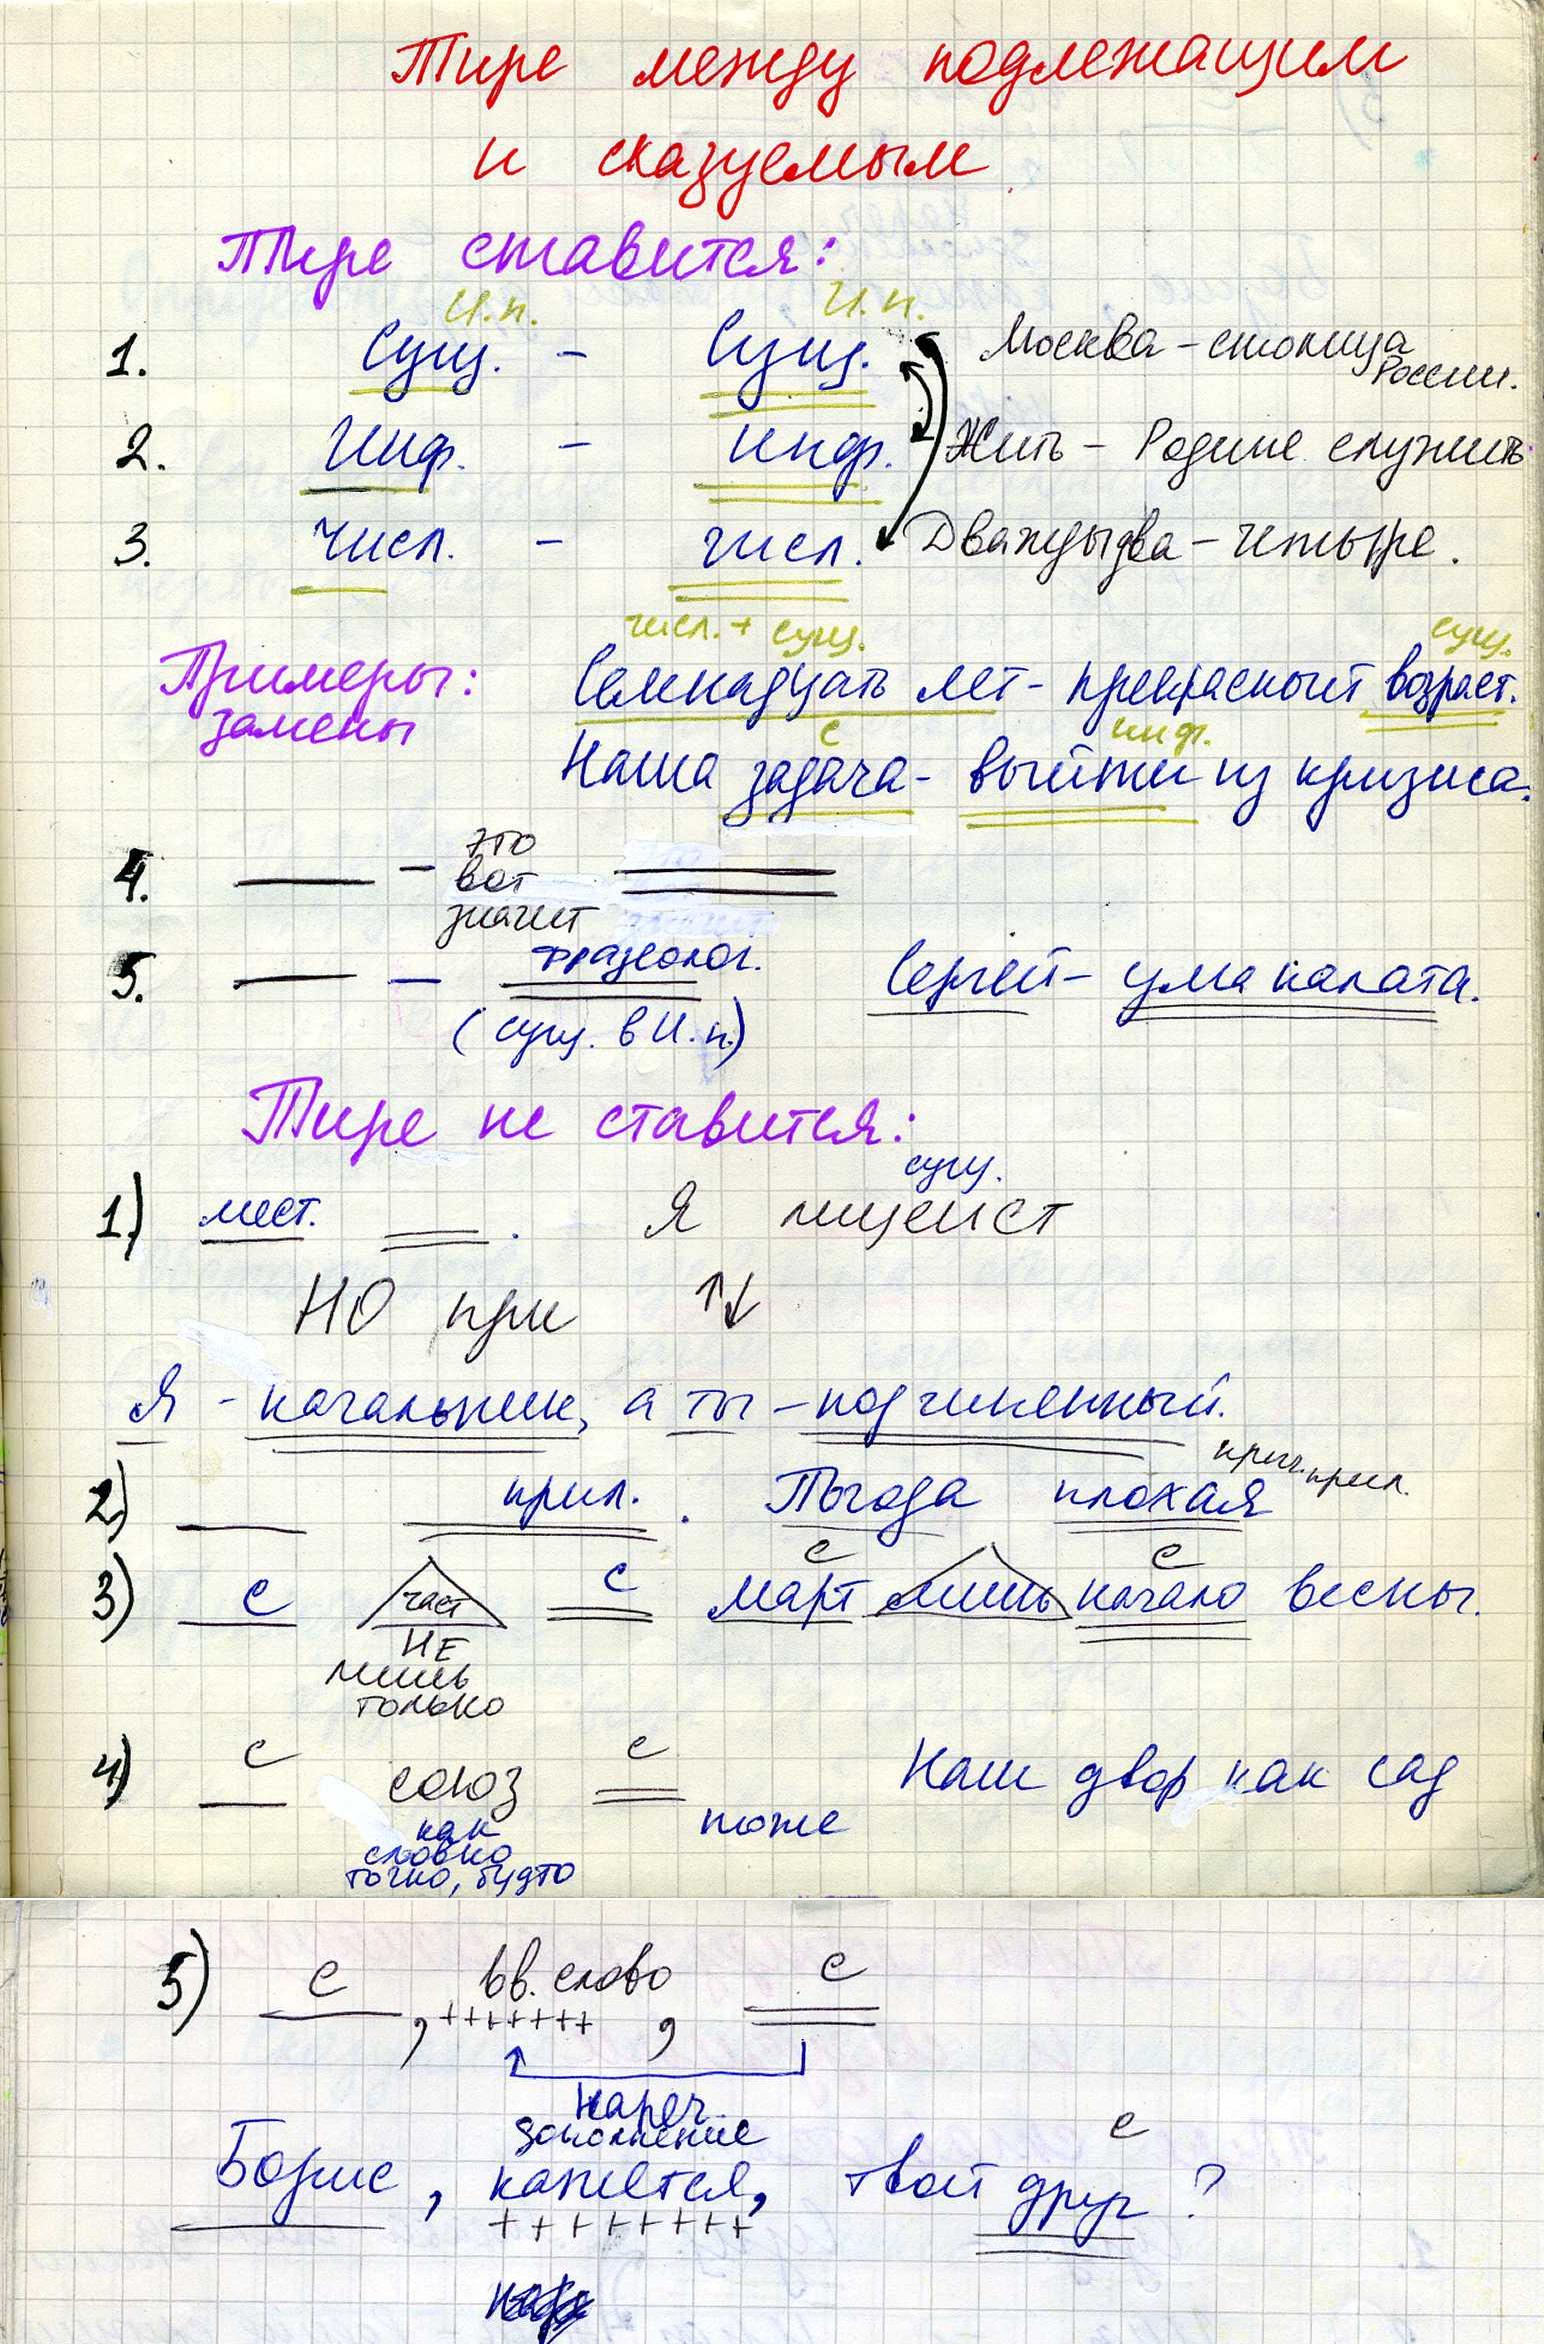 Тире между подлежащим
и сказуемым
Тире ставится:
И.п. И.п.
1. Сущ. – Сущ. Москва – столица
России.
2. Инф. – инф. Жить – Родине служить
3. числ. – числ. Дважды два – четыре.
числ. + сущ. сущ.
Примеры: Семнадцать лет – прекрасный возраст.
замены
с инф.
Наша задача – выйти из кризиса.
это
4. – вот
значит
5. – фразеолог. Сергей – ума палата.
(сущ. в И.п.)
Тире не ставится:
сущ.
1) мест. Я лицеист
НО при ↑↓
Я – начальник, а ты – подчиненный.
2) прил. Погода плохая
прил.
с с
3) с част с март лишь начало весны.
НЕ
лишь
только
4) с союз с Наш двор как сад
как тоже
словно
точно, будто
5) с , вв. слово , с
+++++++
нареч.
дополнение
с
Борис, кажется, твой друг?
++++++++